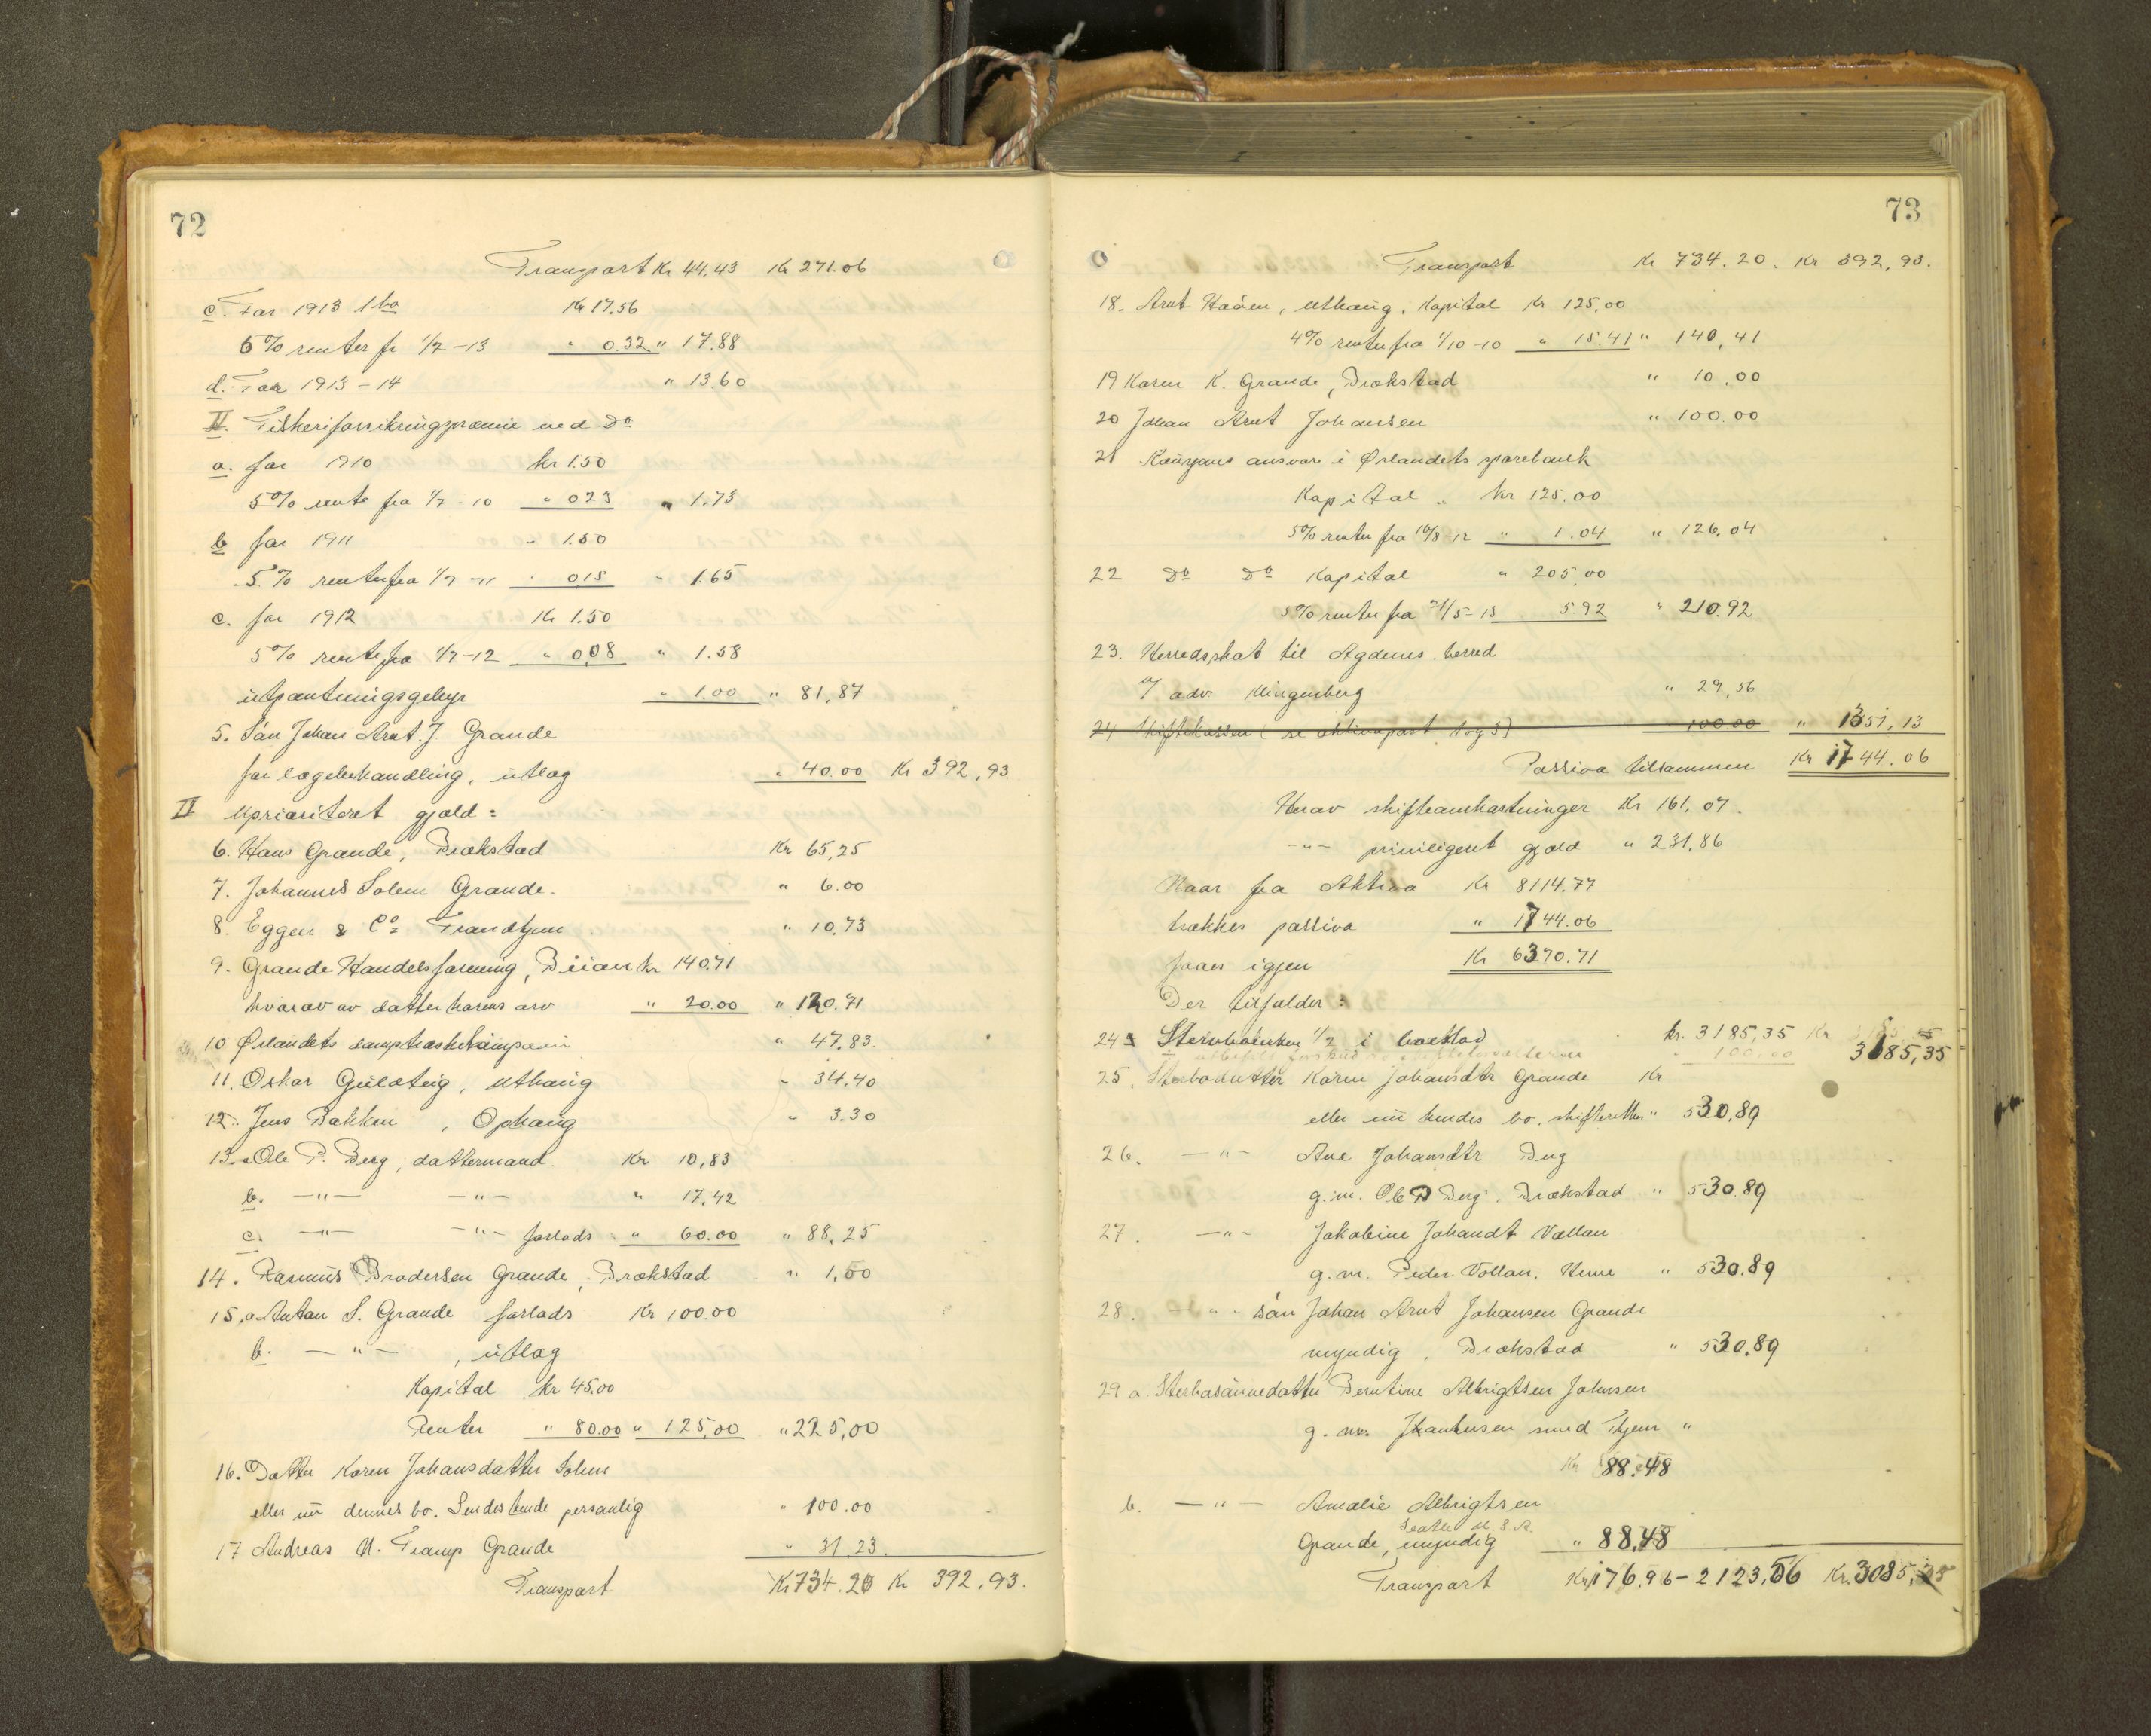 72
Transport Kr 44,43 Kr 271.06
c. For 1913 1ho Kr 17.56
6% renter fr 1/7 - 13 " 0.32 " 17.88
d. For 1913 - 14 " 13.60
II. Fiskeriforsikringspræmie ved Do
a. for 1910 kr 1.50
5% rente fra 1/7 - 10 " 0 23 " 1.73
b for 1911 " 1.50
5% renter fra 1/7 - 11 " 0,15 " 1.65
c. for 1912 Kr 1.50
5% rente fra 1/7 - 12 " 0,08 " 1.58
utpantningsgebyr " 1.00 " 81,87
5. Søn Johan Arnt J. Grande
for lægebehandling, utlæg " 40.00 Kr 392,93
II Uprioriteret gjæld:
6. Hans Grande, Brækstad Kr 65,25
7. Johannes Solem Grande. " 6.00
8. Eggen & Co = Trondhjem " 10,73
9. Grande Handelsforening, Brian kr 140.71
hvorav av datter Karens arv " 20.00 " 120.71
10 Ørlandets damptræskekompani " 47.83.
11. Oskar Gulæteig, Uthaug " 34.40
12. Jens Bakken, Ophaug " 3.30
13. a Ole P. Berg, dattermand Kr 10,83
b. — " — — " — " 17.42
c. — " — — " — forlods " 60.00 " 88,25
14. Rasmus Brodersen Grande, Brækstad " 1,50
15. a Anton S. Grande forlods Kr 100.00
b. — " — , utlæg
Kapital kr 45.00
Renter " 80.00 " 125,00 " 225,00
16. Datter Karen Johansdatter Solem
eller nu dennes bo. Sendes hende personlig " 100.00
17 Andreas N. Tramp Grande " 31.23.
Transport Kr 734.20 Kr 392,93.
73
Transport Kr 734.20. Kr 392,93.
18. Arnt Haaen, Uthaug, Kapital Kr 125,00
4% renter fra 1/10 - 10 " 15.41 " 140,41
19 Karen K. Grande, Brækstad " 10,00
20 Johan Arnt Johansen " 100.00
21 Kausjons ansvar i Ørlandets sparebank
Kapital " kr 125.00
5% renter fra 10/8 - 12 " 1.04 " 126,04
22 Do Do Kapital " 205,00
5% renter fra 21/5 - 13 5.92 " 210.92
23. Herredsskat til Agdenes herred
v/ adv Klingenberg " 29,56
24 Skiftekassen (se aktivapost 1 og 5) 100.00 " 1351,13
Passiva tilsammen Kr 1744.06
Herav skifteomkostninger Kr 161,07.
— " — priviligeret gjæld " 231,86
Naar fra Aktiva Kr 8114.77
trækkes passiva " 1744.06
faaes igjen Kr 6370.71
Der tilfalder:
24 Stervboenken 1/2 i boeslod kr. 3185,35 Kr 3185,35
100.00
25. Sterbodatter Karen Johansdtr Grande Kr
eller nu hendes bo. skifteretten " 530,89
26. — " — Ane Johansdtr Berg
g.m. Ole P Berg, Brækstad " 530.89
27. — " — Jakobine Johansdt Vollan
g.m. Peder Vollan, Hevne " 530.89
28. — " — søn Johan Arnt Johansen Grande
myndig, Brækstad " 530.89
29 a. Sterbosønnedatter Berntine Albrigtsen Johnsen
g.m. smed Thjem "
Kr 88.48
b. — " — Amalie Albrigtsen
Seatle U.S.A.
Grande, myndig " 88,48
Transport Kr 176.96 - 2123.56 Kr. 3085,35